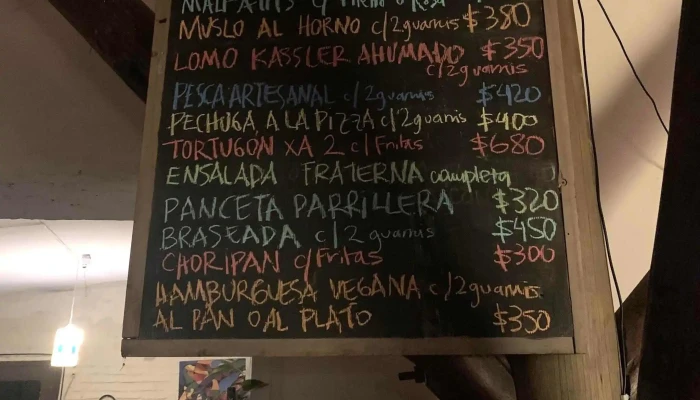 MUSLO AL HORNO c/2guarnis $380
LOMO KASSLER AHUMADO $350
c/2guarnis
PESCA ARTESANAL c/2guarnis $420
PECHUGA A LA PIZZA c/2guarnis $400
TORTUGÓN XA 2 c/Fritas $680
ENSALADA FRATERNA completa
$320
PANCETA PARRILLERA
BRASEADA c/2guarnis $450
CHORIPAN c/fritas $300
HAMBURGUESA VEGANA c/2guarnis
AL PAN O AL PLATO $350